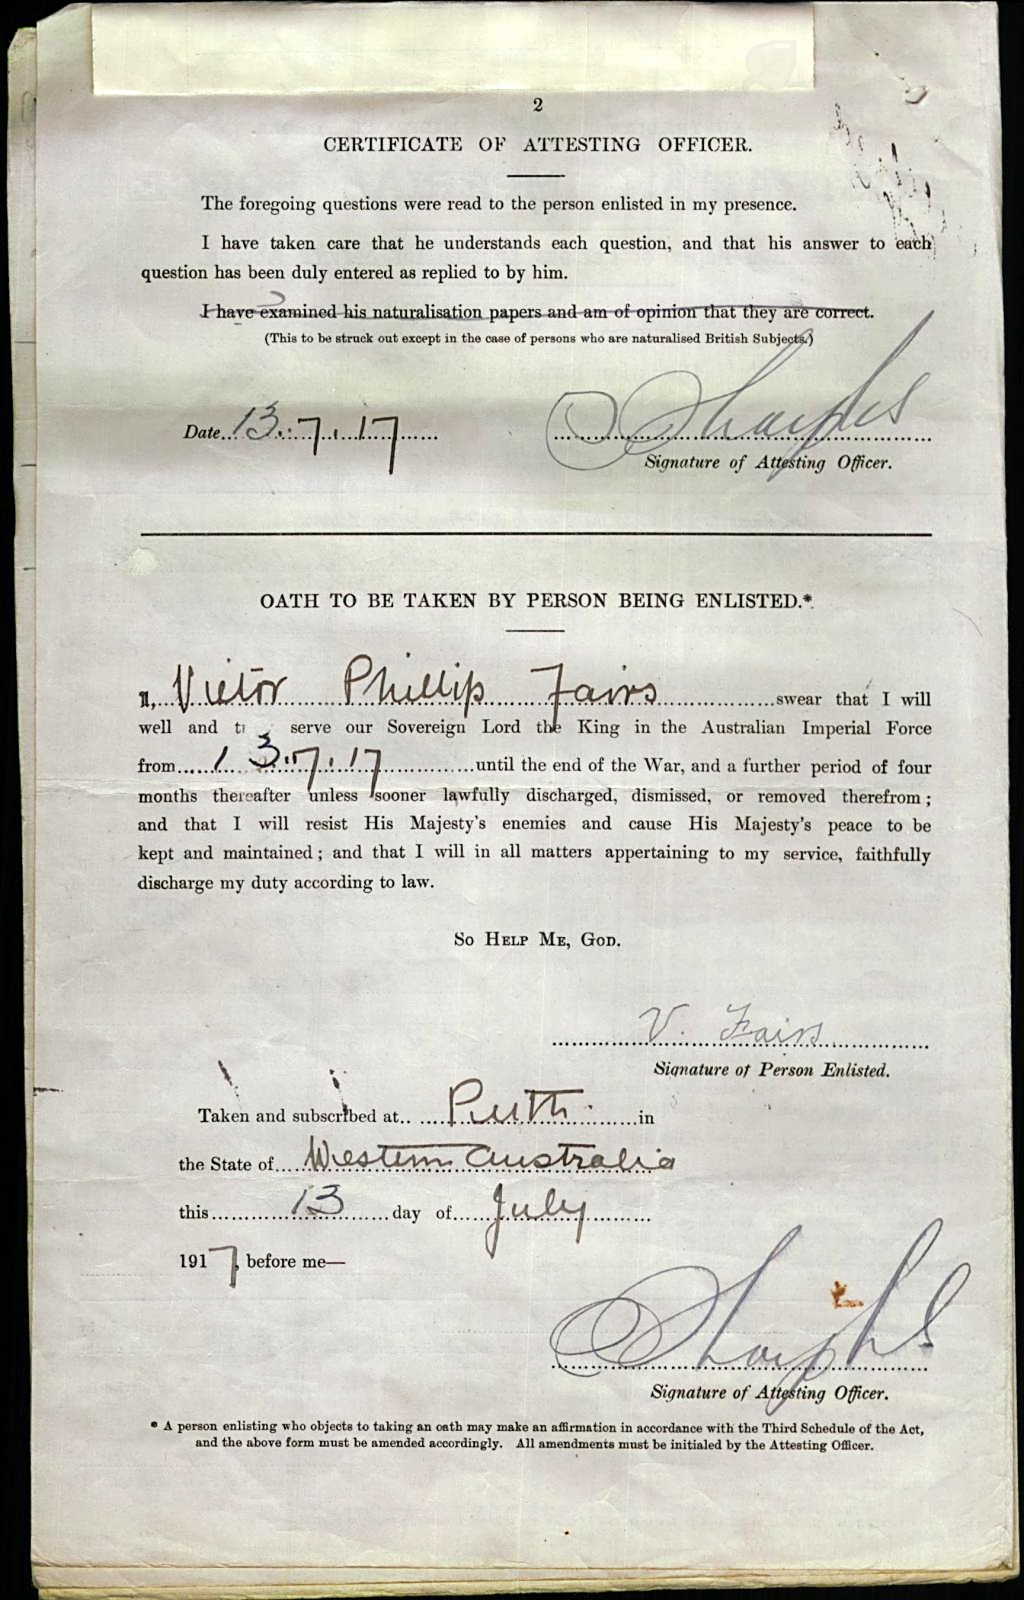 2
CERTIFICATE OF ATTESTING OFFICER.
The foregoing questions were read to the person enlisted in my presence.
I have taken care that he understands each question, and that his answer to each
question has been duly entered as replied to by him.
I have examined his naturalisation papers and am of opinion that they are correct.
(This to be struck out except in the case of persons who are naturalised British Subjects.)
Date 13.7.17
Signature of Attesting Officer.
OATH TO BE TAKEN BY PERSON BEING ENLISTED.*
I, Victor Phillip Fairs swear that I will
well and tr serve our Sovereign Lord the King in the Australian Imperial Force
from 13.7.17 until the end of the War, and a further period of four
months thereafter unless sooner lawfully discharged, dismissed, or removed therefrom;
and that I will resist His Majesty's enemies and cause His Majesty's peace to be
kept and maintained; and that I will in all matters appertaining to my service, faithfully
discharge my duty according to law.
So Help Me, God.
V. Fairs
Signature of Person Enlisted.
Taken and subscribed at Perth in
the State of Western Australia
this 13 day of July
1917, before me—
Signature of Attesting Officer.
* A person enlisting who objects to taking an oath may make an affirmation in accordance with the Third Schedule of the Act,
and the above form must be amended accordingly. All amendments must be initialed by the Attesting Officer.